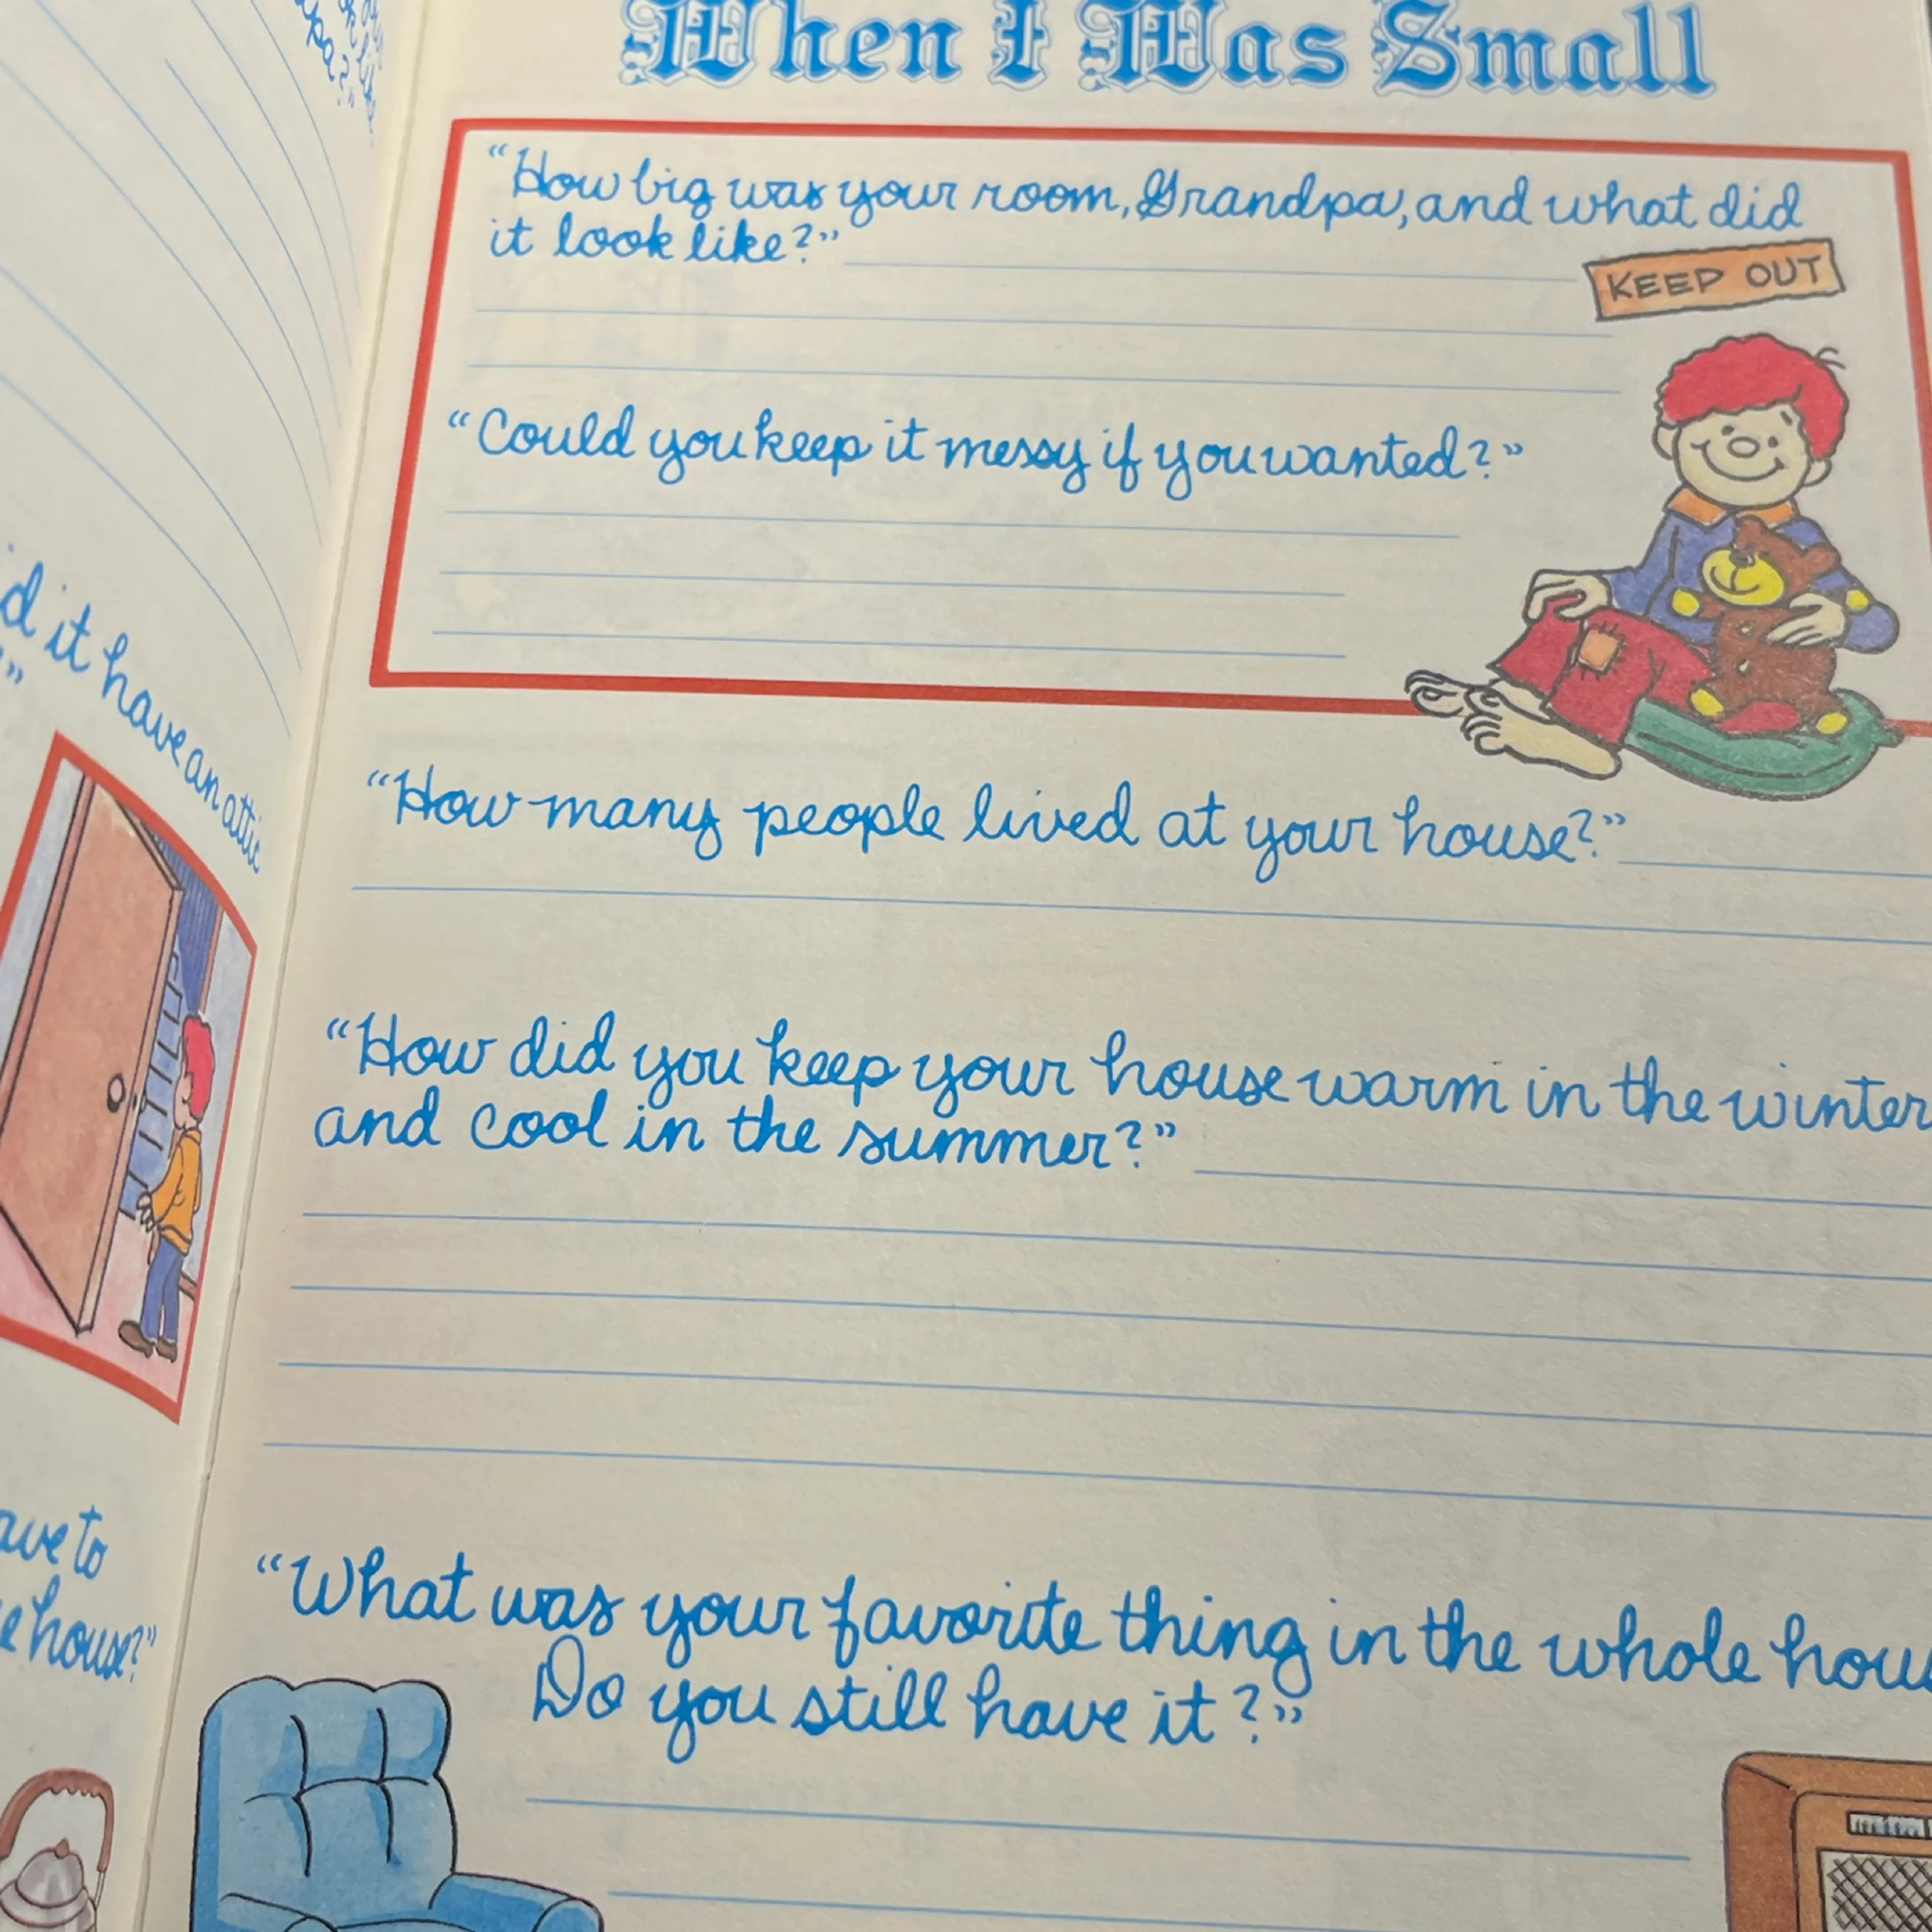 pa?"
d it have an attic
?"
ave to
e house?"
When I Was Small
"How big was your room, Grandpa, and what did
it look like?"
KEEP OUT
"Could you keep it messy if you wanted?"
"How many people lived at your house?"
"How did you keep your house warm in the winter
and cool in the summer?"
"What was your favorite thing in the whole hou
Do you still have it?"